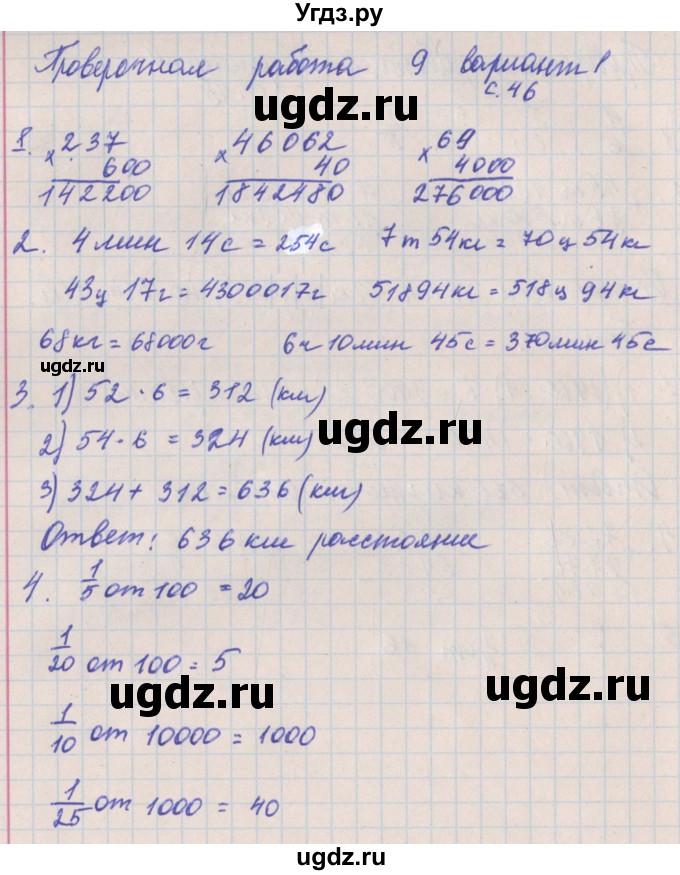 Угдз.ру
Проверочная работа 9 вариант 1
с. 46
ugdz.ru ugdz.ru
1. × 237 × 46062 × 69
600 40 4000
142200 1842480 276000
2. 4 мин 14 с = 254 с 7 т 54 кг = 70 ц 54 кг
43 ц 17 г = 4300017 г 51894 кг = 518 ц 94 кг
68 кг = 68000 г 6 ч 10 мин 45 с = 370 мин 45 с
ugdz.ru
3. 1) 52 · 6 = 312 (км)
ugdz.ru
2) 54 · 6 = 324 (км)
3) 324 + 312 = 636 (км)
ugdz.ru
Ответ: 636 км расстояние
4. 1/5 от 100 = 20
1/20 от 100 = 5
ugdz.ru ugdz.ru
1/10 от 10000 = 1000
1/25 от 1000 = 40
ugdz.ru